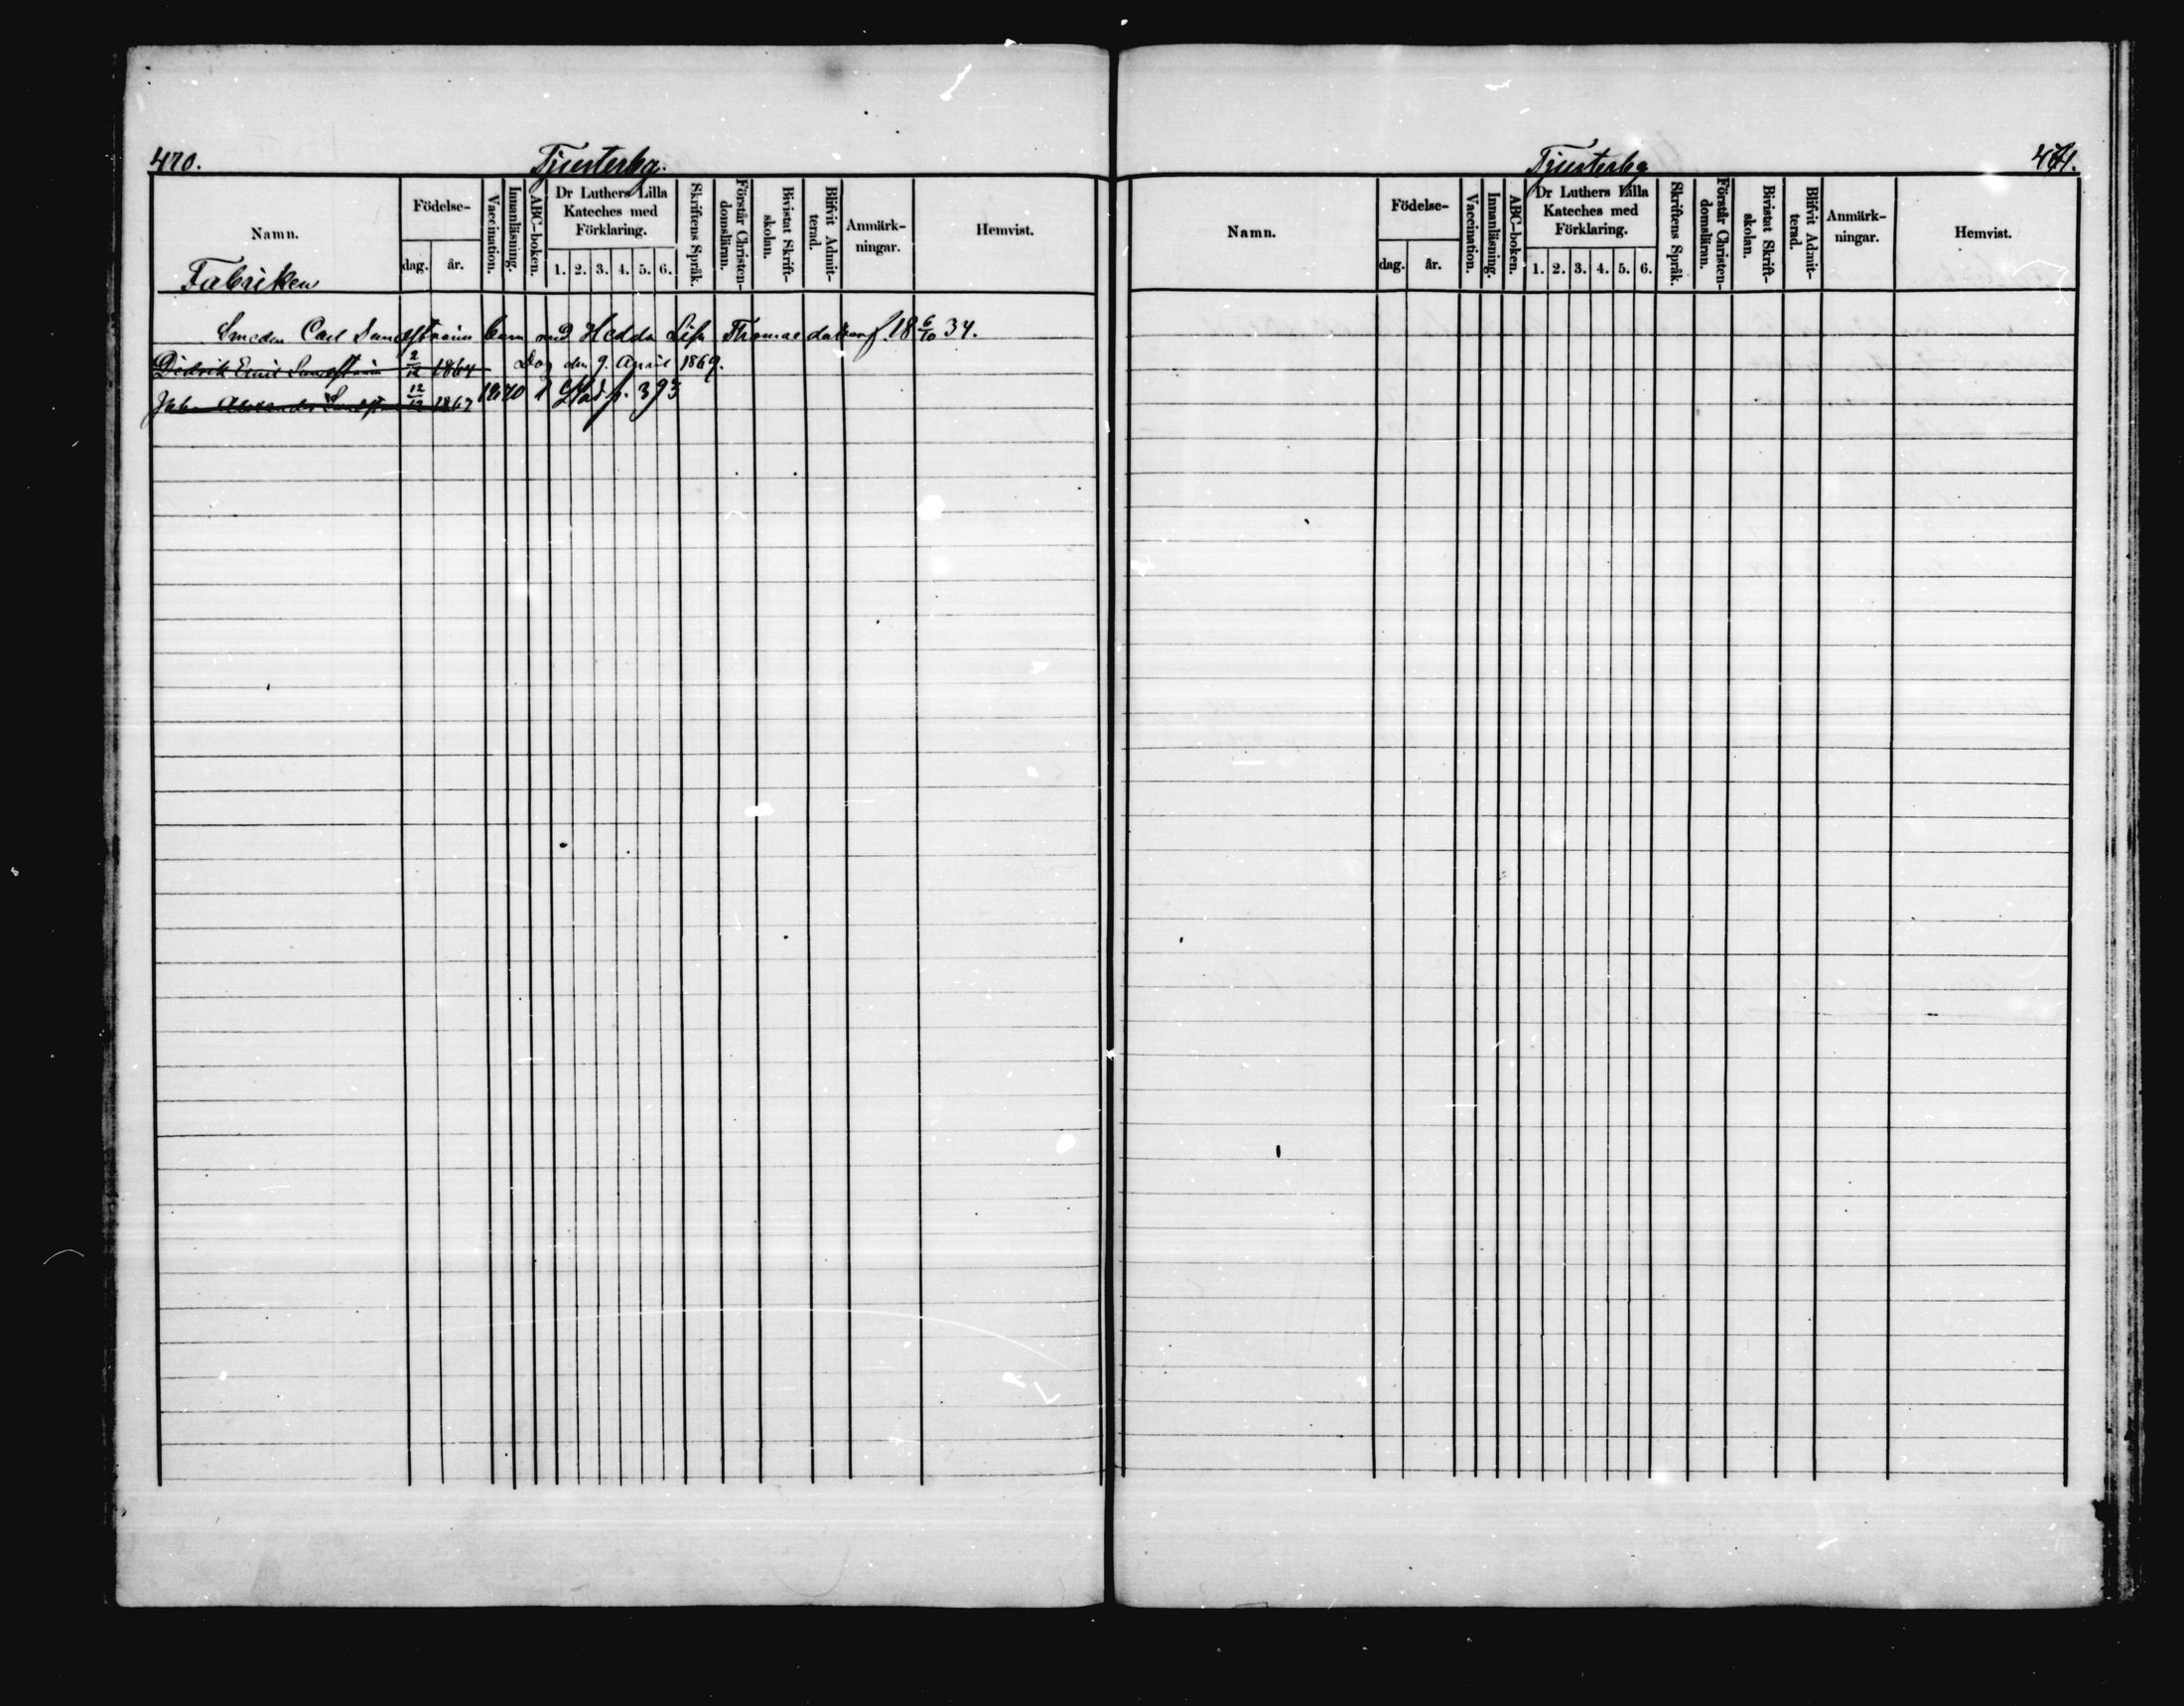 470.
Tjusterby.
Namn.
Födelse-
dag.
år.
Vaccination.
Innanläsning.
ABC-boken.
Dr Luthers Lilla
Kateches med
Förklaring.
1. 2. 3. 4. 5. 6.
Skriftens Språk.
Förstår Christen-
domsläran.
Bivistat Skrift-
skolan.
Blifvit Admit-
terad.
Anmärk-
ningar.
Hemvist.
Fabriken
Smeden Carl Sundström barn med Hedda Lisa Thomae dotter f. 18 6/10 34.
Didrik Emil Sundström 2/12 1864 Dog den 9. April 1869.
Johan Alexander Sundström 12/12 1867 1870 p. 393
Tjusterby
471.
Namn.
Födelse-
dag.
år.
Vaccination.
Innanläsning.
ABC-boken.
Dr Luthers Lilla
Kateches med
Förklaring.
1. 2. 3. 4. 5. 6.
Skriftens Språk.
Förstår Christen-
domsläran.
Bivistat Skrift-
skolan.
Blifvit Admit-
terad.
Anmärk-
ningar.
Hemvist.